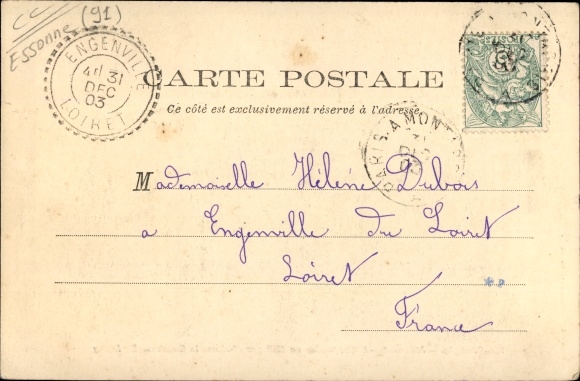 (91)
Essonne
ENGENVILLE
31
DEC
03
LOIRET
CARTE POSTALE
Ce côté est exclusivement réservé à l'adresse
PARIS A MONT
Mademoiselle Hélène Dubois
a Engenville du Loiret
Loiret
France